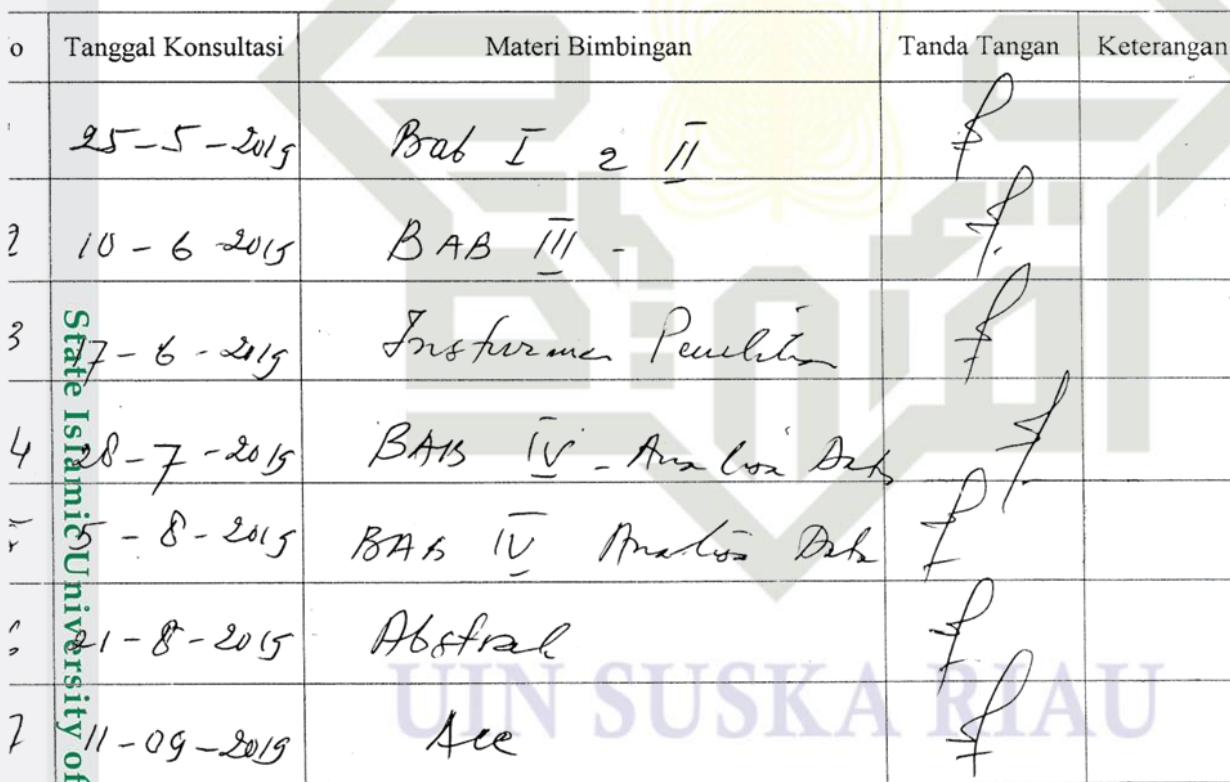 o Tanggal Konsultasi Materi Bimbingan Tanda Tangan Keterangan
25-5-2019 Bab I 2 II
2 10-6-2019 BAB III -
3 17-6-2019 Instrumen Penelitian
4 28-7-2019 BAB IV - Analisa Data
5-8-2019 BAB IV Analisis Data
21-8-2019 Abstrak
7 11-09-2019 Acc
State Islamic University of
UIN SUSKA RIAU